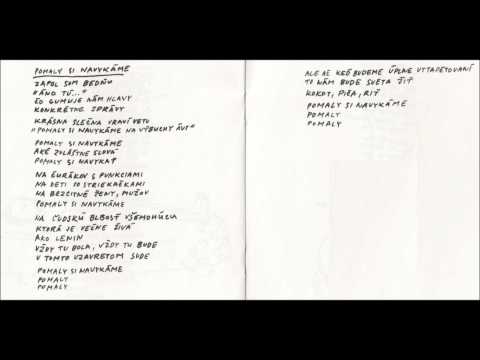 POMALY SI NAVYKÁME
ZAPOL SOM BEDŇU
"ÁNO TÚ..."
ČO GUMUJE NÁM HLAVY
KONKRÉTNE ZPRÁVY
KRÁSNA SLEČNA VRAVÍ VETU
"POMALY SI NAVYKÁME NA VÝBUCHY ÁUT"
POMALY SI NAVYKÁME
AKÉ ZVLÁŠTNE SLOVÁ
POMALY SI NAVYKAŤ
NA ČURÁKOV S FUNKCIAMI
NA DETI SO STRIEKAČKAMI
NA BEZCITNÉ ŽENY, MUŽOV
POMALY SI NAVYKÁME
NA ĽUDSKÚ BLBOSŤ VŠEMOHÚCU
KTORÁ JE VEČNE ŽIVÁ
AKO LENIN
VŽDY TU BOLA, VŽDY TU BUDE
V TOMTO UZAVRETOM SUDE
POMALY SI NAVYKÁME
POMALY
POMALY
ALE AŽ KEĎ BUDEME ÚPLNE VYTAPETOVANÍ
TO NÁM BUDE SVETA ŽIŤ
KOKOT, PIČA, RIŤ
POMALY SI NAVYKÁME
POMALY
POMALY